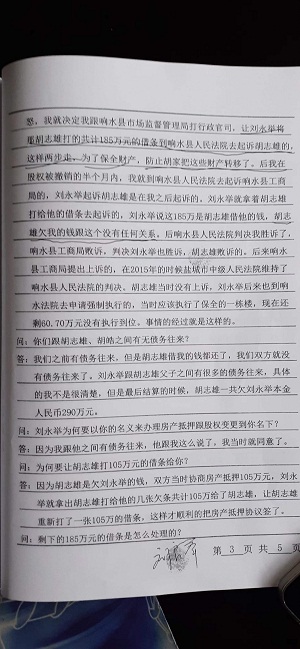 怒，我就决定我跟响水县市场监督管理局打行政官司，让刘永举将
那胡志雄打的共计185万元的借条到响水县人民法院去起诉胡志雄的，
这样两步走，为了保全财产，防止胡家把这些财产转移了。后我在
股权被撤销的半个月内，我就到响水县人民法院去起诉响水县工商
局的，刘永举起诉胡志雄是在我之后起诉的，刘永举就拿着胡志雄
打给他的借条去起诉的，刘永举说这185万是胡志雄借他的钱，胡志
雄欠我的钱跟这个没有任何关系。后响水县人民法院判决我胜诉了，
响水县工商局败诉，判决刘永举也胜诉，胡志雄败诉的。后来响水
县工商局提出上诉的，在2015年的时候盐城市中级人民法院维持了
响水县人民法院的判决。胡志雄当时没有上诉，刘永举后来也到响
水法院去申请强制执行的，当时应该执行了保全的一栋楼，现在还
剩60、70万元没有执行到位。事情的经过就是这样的。
问：你们跟胡志雄、胡皓之间有无债务往来？
答：我们之前有债务往来，但是胡志雄借我的钱都还了，我们双方就没
有债务往来了。刘永举跟胡志雄父子之间有很多的债务往来，具体
的我不是很清楚，但是最后结算的时候，胡志雄一共欠刘永举本金
人民币290万元。
问：刘永举为何要以你的名义来办理房产抵押跟股权变更到你名下？
答：因为我跟他之间有债务往来，他跟我这么说了，我当时就同意了。
问：为何要让胡志雄打105万元的借条给你？
答：因为胡志雄是欠刘永举的钱，双方当时协商房产抵押105万元，刘永
举就拿出胡志雄打给他的几张欠条共计105万给了胡志雄，让胡志雄
重新打了一张105万的借条，这样才顺利的把房产抵押协议签了。
问：剩下的185万元的借条是怎么处理的？
第 3 页 共 5 页